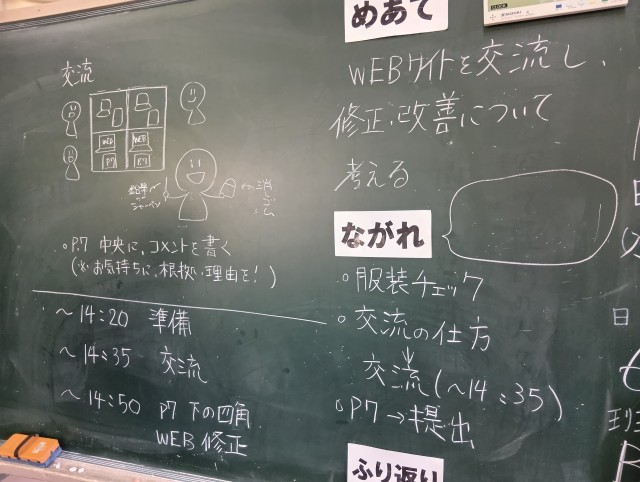 交流
WEB
WEB
P.7
P.7
鉛筆or
シャーペン
消しゴム
○P.7 中央に、コメントを書く
(※お気持ちに、根拠、理由を!)
~14:20 準備
~14:35 交流
~14:50 P7 下の四角
WEB 修正
めあて
WEBサイトを交流し、
修正・改善について
考える
ながれ
○服装チェック
○交流の仕方
↓
交流(~14:35)
○P7→提出
ふり返り
日